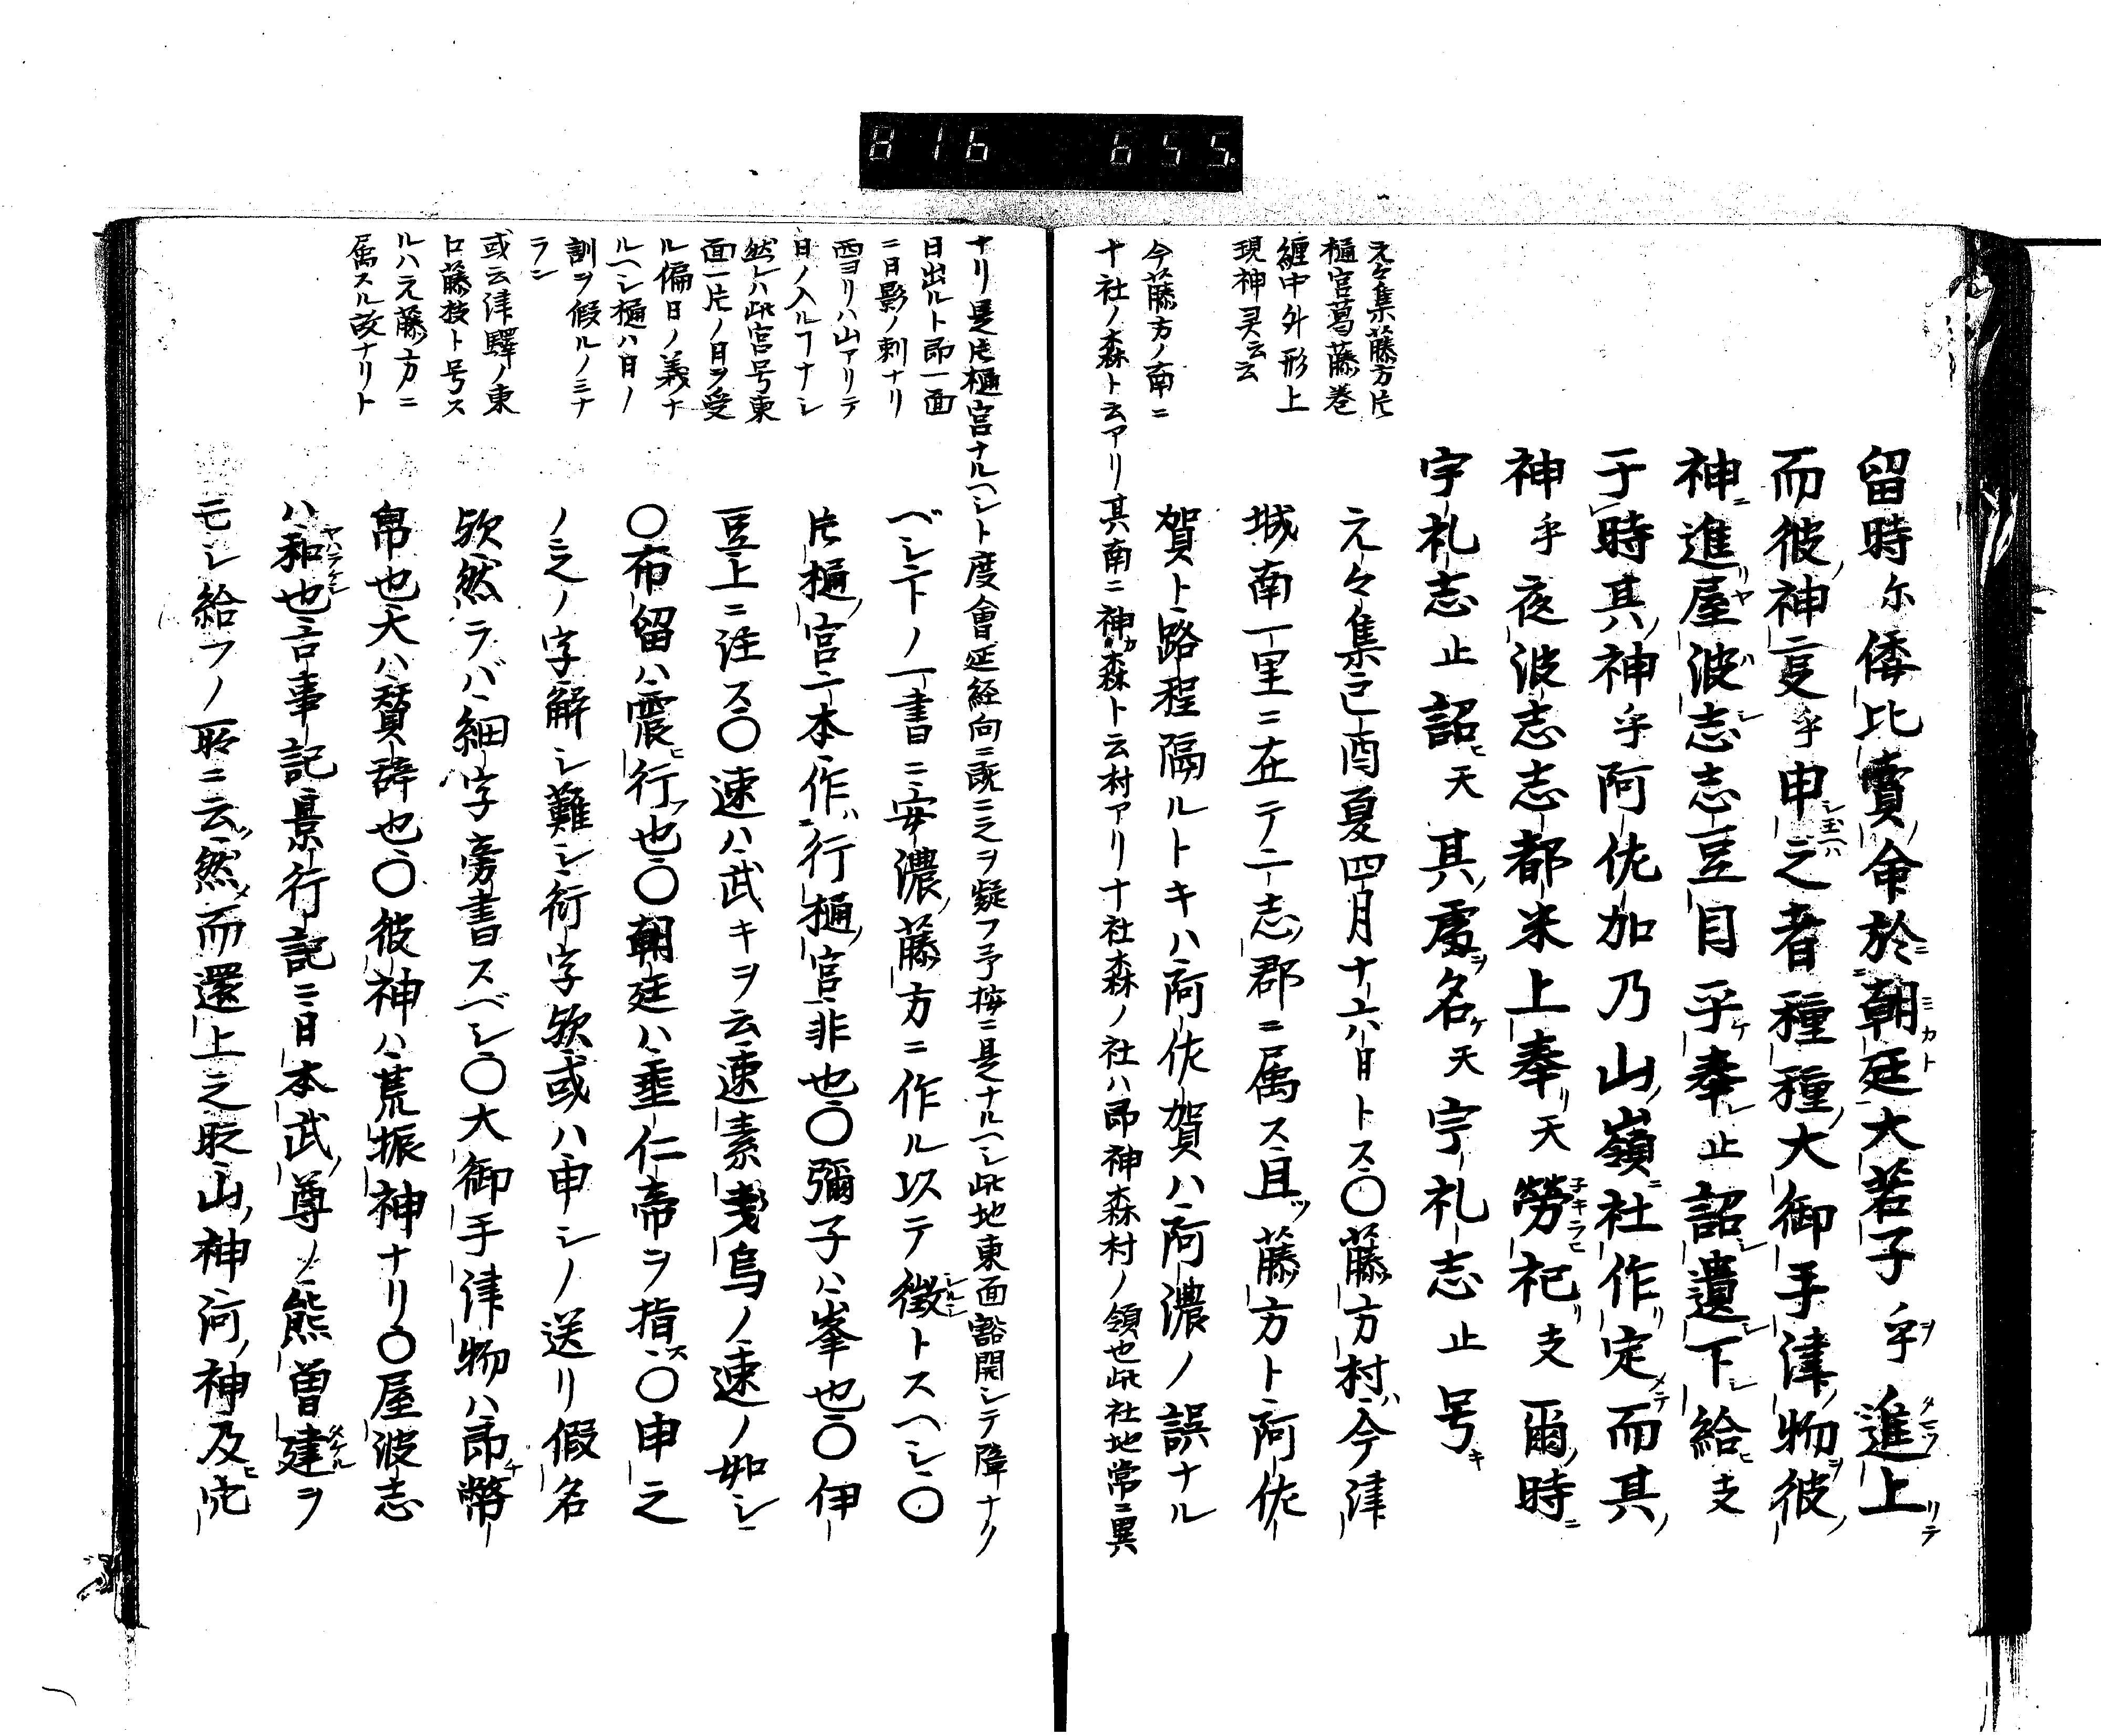 816 655.
留時尓倭比賣命於朝廷大若子乎進上
而彼神事乎申之者種種大御手津物彼
神進屋波志志豆目乎奉止詔遣下給支
于時其神乎阿佐加乃山嶺社作定而其
神乎夜波志志都米上奉天勞祀支爾時
宇礼志止詔天其處名天宇礼志止号
元々集藤方片
樋宮葛藤巻
纏中外形上
現神灵云云
元々集己酉夏四月十六日トス〇藤方村ハ今津
城南一里ニ在テ一志郡ニ属ス且ツ藤方ト阿佐
賀ト路程隔ルトキハ阿佐賀ハ阿濃ノ誤ナル
今藤方ノ南ニ
十社ノ森ト云アリ其南ニ神森ト云村アリ十社森ノ社ハ即神森村ノ領也此社地常ニ異
ナリ是片樋宮ナルヘシト度會延経向ニ既ニ之ヲ疑フ予按ニ是ナルヘシ此地東面豁開シテ障ナク
日出ルト即一面
ニ日影ノ刺ナリ
西ヨリハ山アリテ
日ノ入ルヿナシ
然レハ此宮号東
面一片ノ日ヲ受
ル偏日ノ義ナ
ルヘシ樋ハ日ノ
訓ヲ假ルノミナ
ラン
或云津驛ノ東
口藤枝ト号ス
ルハ元藤方ニ
属スル故ナリト
ベシ下ノ一書ニ安濃藤方ニ作ル以テ徴トスヘシ〇
片樋宮一本作行樋宮非也〇彌子ハ峯也〇伊
豆上ニ注ス〇速ハ武キヲ云速素戔烏ノ速ノ如シ
〇布留ハ震行也〇朝廷ハ垂仁帝ヲ指ス〇申之
ノ之ノ字解シ難シ衍字欤或ハ申シノ送リ假名
欤然ラバ細字旁書スベシ〇大御手津物ハ即幣
帛也大ハ賛辞也〇彼神ハ荒振神ナリ〇屋波志
ハ和也古事記景行記ニ日本武尊ノ熊曽建ヲ
モシ給フノ所ニ云然而還上之時山神河神及穴